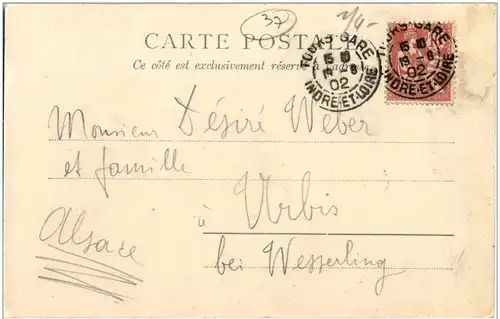 37
2/4-
CARTE POSTALE
Ce côté est exclusivement réservé à l'adresse
TOURS-GARE
5 E
19 -8
02
INDRE-ET-LOIRE
TOURS-GARE
5 E
19 -8
02
INDRE-ET-LOIRE
Monsieur Désiré Weber
et famille
à Urbis
Alsace
bei Wesserling